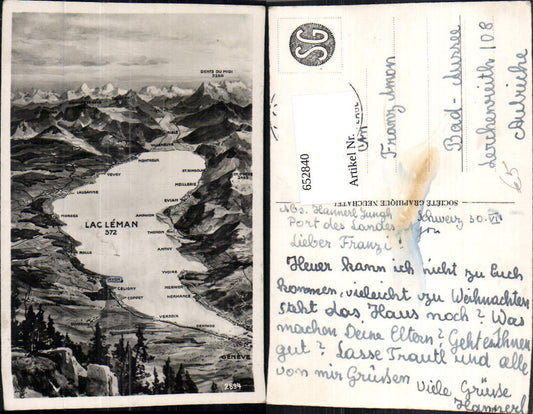 DENTS DU MIDI
3260
MONTREUX
VEVEY
ST. GINGOLPH
LAUSANNE
MEILLERIE
EVIAN
MORGES
AMPHION
LAC LÉMAN
372
THONON
ROLLE
ANTHY
YVOIRE
NERNIER
CELIGNY
COPPET
HERMANCE
VERSOIX
GENÈVE
2694
SG
Artikel Nr.
652840
SOCIÉTÉ GRAPHIQUE NEUCHATEL
Franz Amon
Bad-Aussee
Lerchenreith 108
Autriche
65
Abs. Hannerl Jungh
Port des Landes
Schweiz 30. VII
Lieber Franzi!
Heuer kann ich nicht zu Euch
kommen, vieleicht zu Weihnachten
steht das Haus noch? Was
machen Deine Eltern? Geht es Ihnen
gut? Lasse Trautl und alle
von mir Grüssen
Viele Grüsse
Hannerl